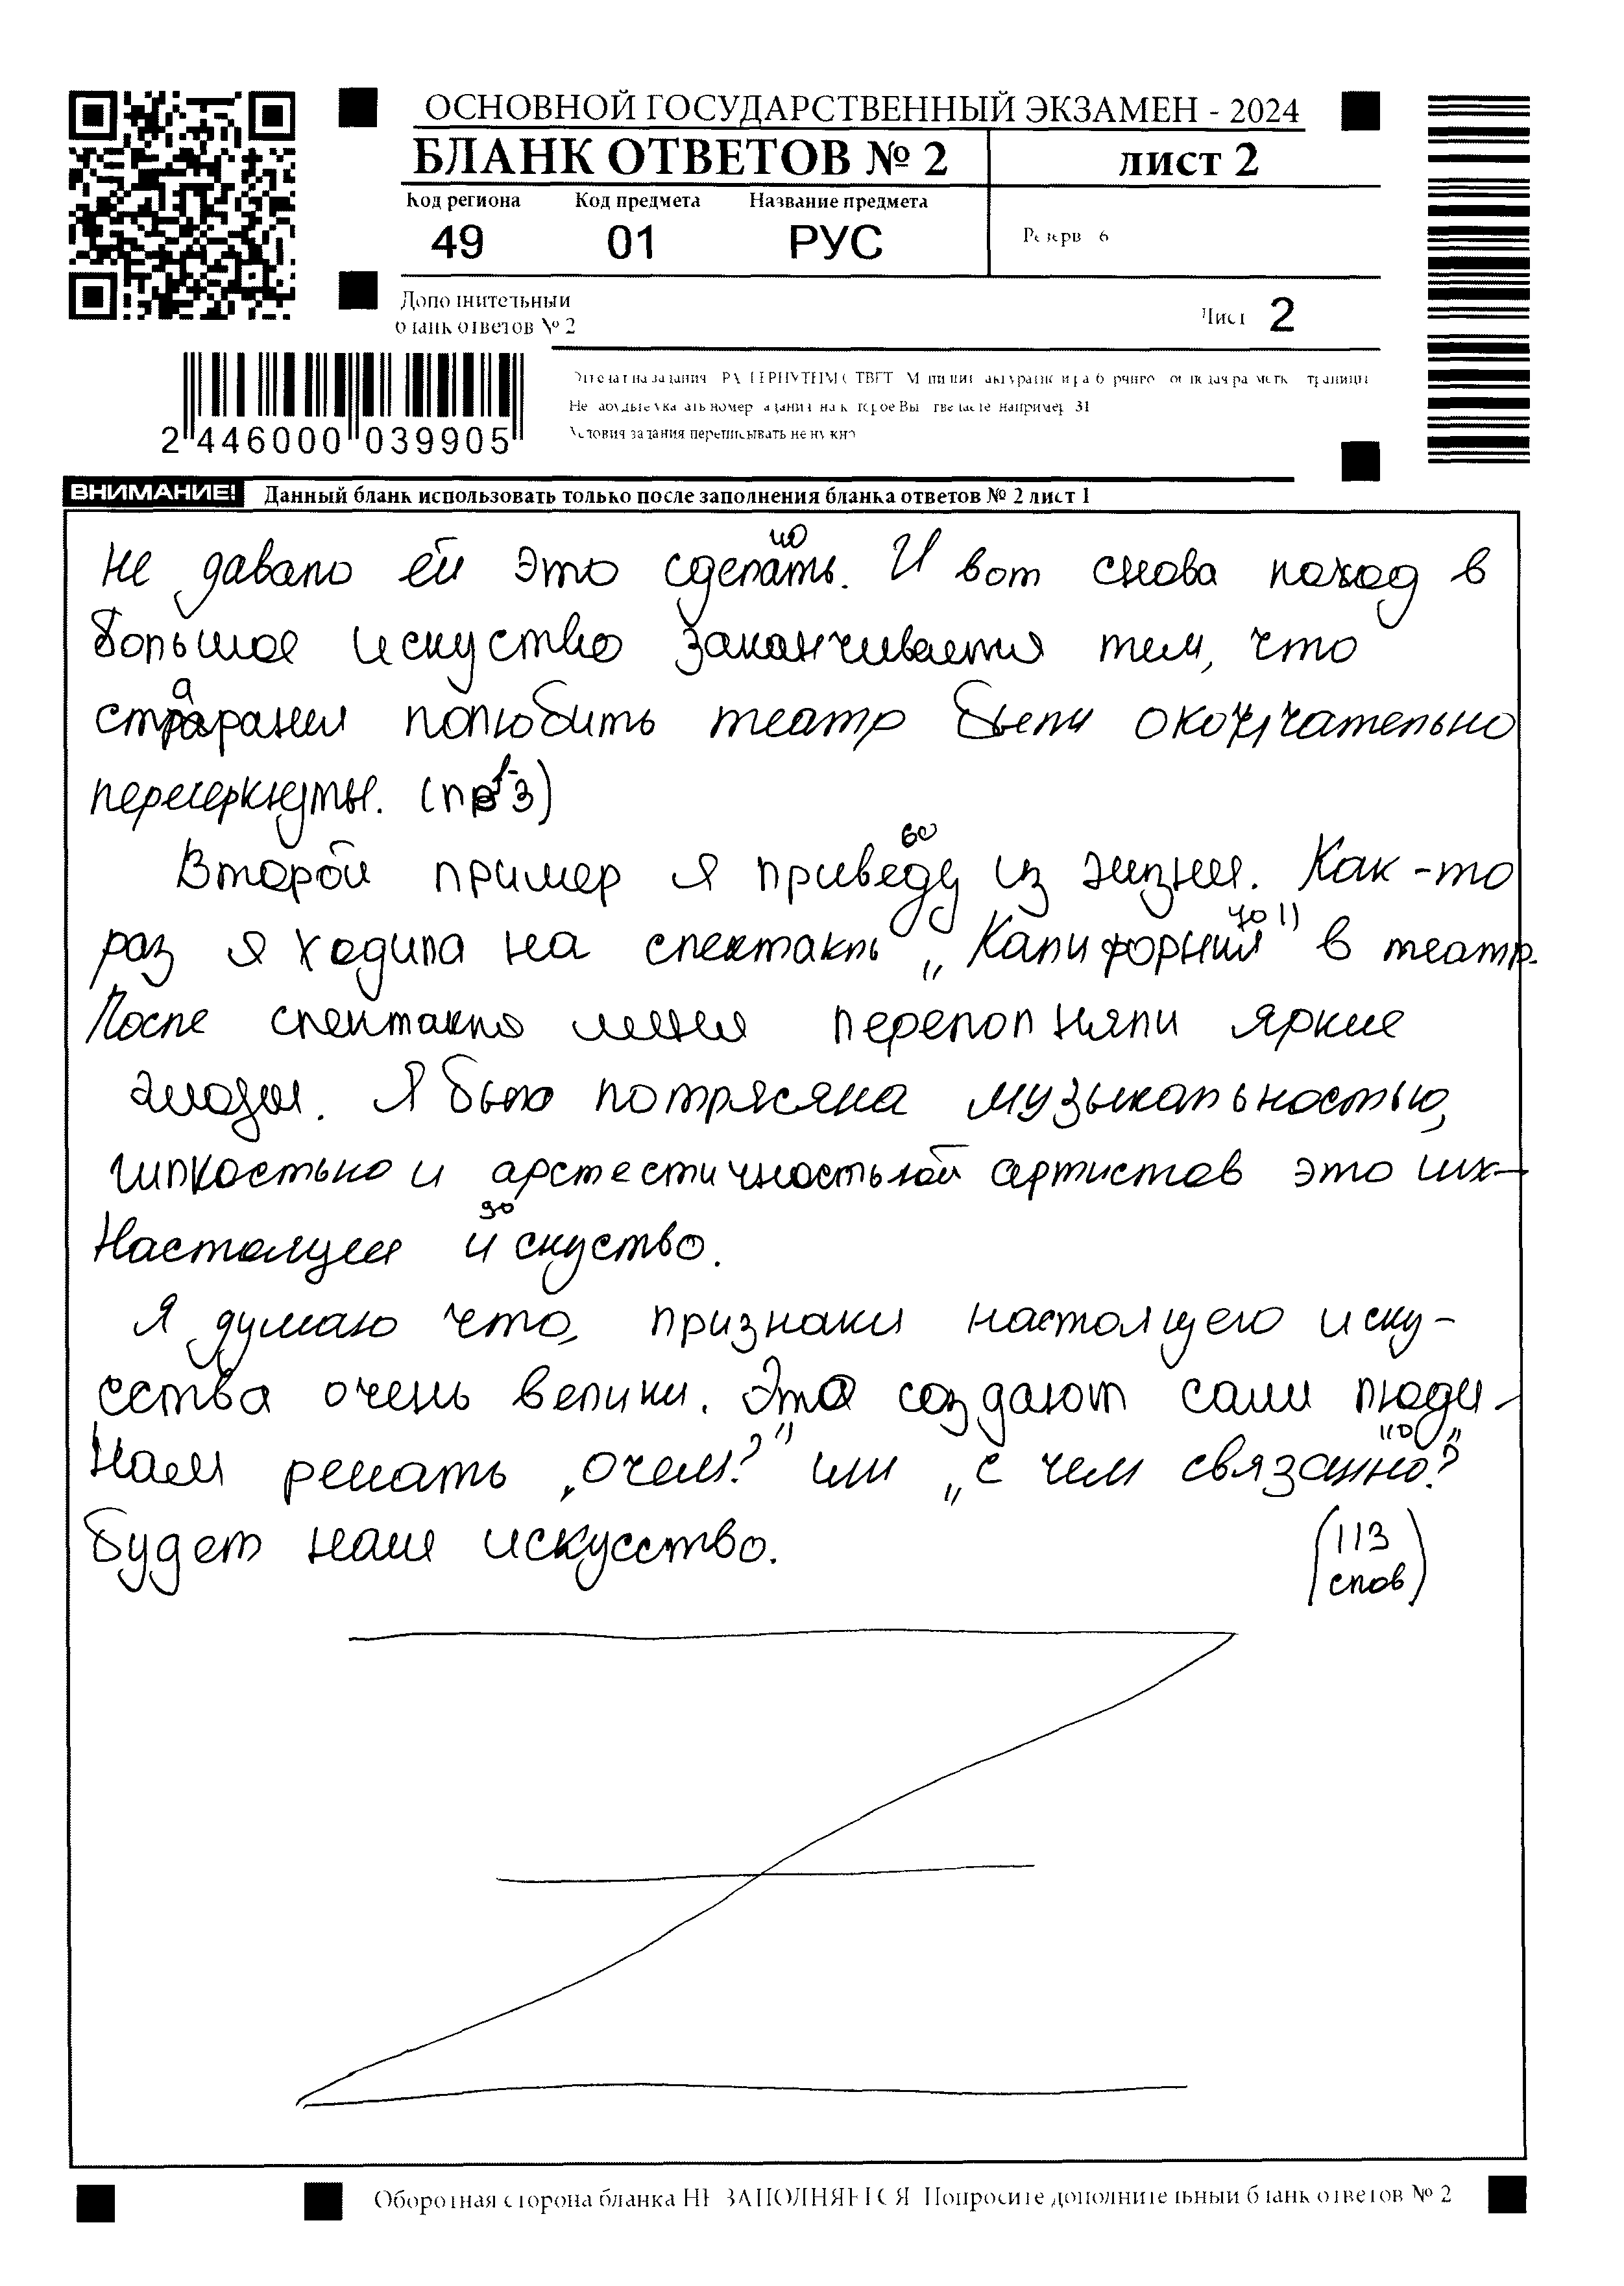 ОСНОВНОЙ ГОСУДАРСТВЕННЫЙ ЭКЗАМЕН - 2024
БЛАНК ОТВЕТОВ № 2
лист 2
Код региона Код предмета Название предмета
49 01 РУС
Резерв 6
Дополнительный
бланк ответов № 2
Лист 2
Условия задания переписывать не нужно
2 446000 039905
ВНИМАНИЕ! Данный бланк использовать только после заполнения бланка ответов № 2 лист 1
40
не давало ей это сделать. И вот снова поход в
большое искуство заканчивается тем, что
старания полюбить театр были окончательно
перечеркнуты. (пр 1-3)
60
Второй пример я приведу из жизни. Как-то
70
раз я ходила на спектакль „Калифорния" в театр.
После спектакля меня переполняли яркие
эмоции. Я было потрясяна музыкальностью,
гипкостью и арстестичностьюй артистов это их-
90
Настоящее искуство.
Я думаю что, признаки настоящего иску-
сства очень велики. Это создают сами люди
110
Нам решать „очем?" или „с чем связанно?"
будет наше искусство.
(113
слов)
Оборотная сторона бланка НЕ ЗАПОЛНЯЕТСЯ. Попросите дополнительный бланк ответов № 2